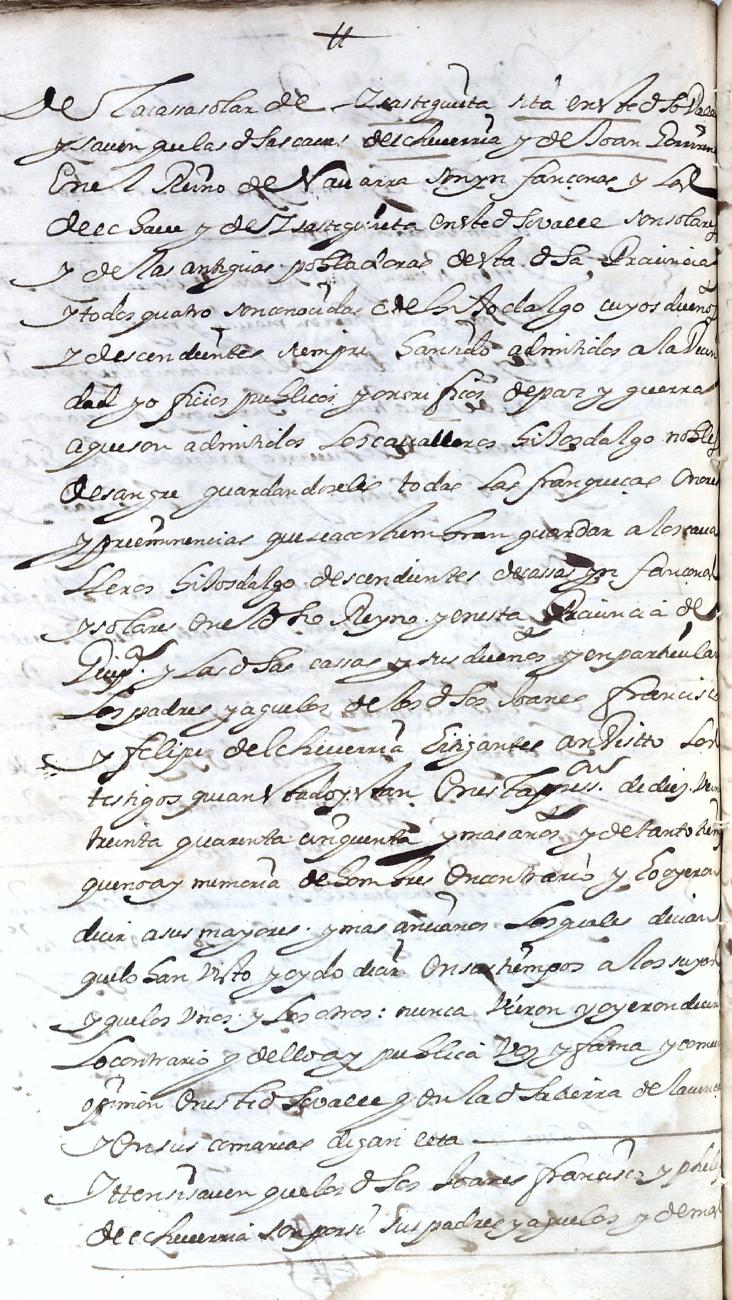 de la cassa solar de Ysasteguieta sita en este dho Valle
y saven que las dhas casas de Echeverria y de Joan
En el Reino de Navarra son ynfançonas y las
de echave y de Ysasteguieta en este dho valle son solares
y de las antiguas pobladoras desta dha Provincia
y todos quatro son conocidas de hijosdalgo cuyos dueños
y descendientes siempre han sido admitidos a la
dad y officios publicos y onorificos de paz y guerra
a que son admitidos los cavalleros hijosdalgo nobles
de sangre guardandoseles todas las franqueças onores
y preeminencias que se acostumbran guardar a los cava
lleros hijosdalgo descendientes de cassas ynfançonas
y solares en el dho Reyno y en esta Provincia de
Guipª y las dhas cassas y sus dueños y en particular
los padres y aguelos de los dhos Joanes Francisco
y Felipe de Echeverria litigantes an visto los
testigos que an estado y estan en esta posson de diez veinte
treinta quarenta cinquenta y mas años y de tanto tiempo
que no ay memoria de hombres en contrario y lo oyeron
decir a sus mayores y mas ancianos los quales decian
que lo han visto y oydo decir en sus tiempos a los suyos
y que los unos y los otros nunca vieron y oyeron decir
lo contrario y dello ay publica voz y fama y comun
opinion en este dho valle y en la dha tierra de
y en sus comarcas digan eta
Yten si saven que los dhos Joanes Francisco y Phelipe
de echeverria son por si sus padres y aguelos y demas